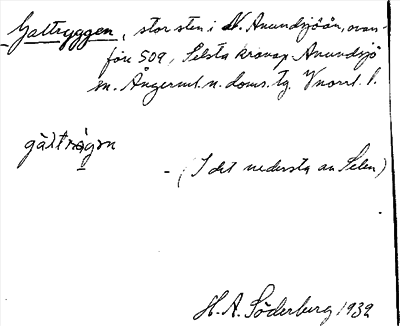 Galtryggen, stor sten i N. Anundsjöån, ovan-
före 509, Selsta kronop. Anundsjö
m. Ångerml. n. doms. tg. Vnorrl. l.
gàltrǫ̀gɔn
- (I det nedersta av Selen)
H. A. Söderberg 1932